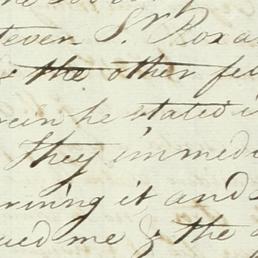 Steven St. Roza
& the other fe
rein he stated i
They immed
rning it and
ued me & the